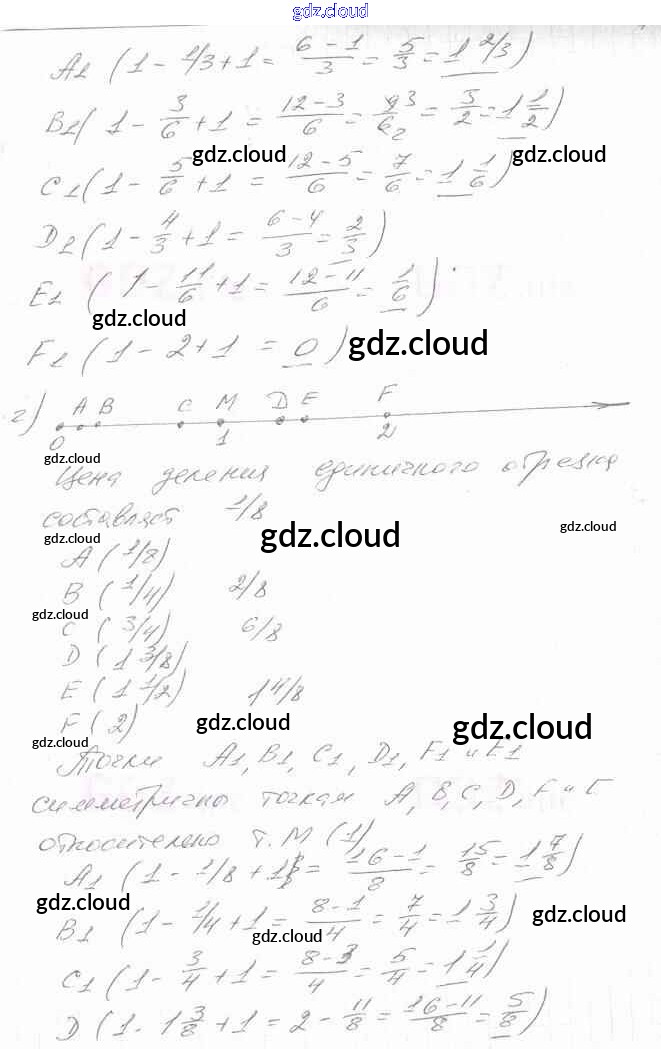 gdz.cloud
A1 (1 - 1/3 + 1 = 6-1/3 = 5/3 = 1 2/3)
B1 (1 - 3/6 + 1 = 12-3/6 = 9 3/6 2 = 3/2 = 1 1/2)
gdz.cloud gdz.cloud
C1 (1 - 5/6 + 1 = 12-5/6 = 7/6 = 1 1/6)
D1 (1 - 4/3 + 1 = 6-4/3 = 2/3)
E1 (1 - 11/6 + 1 = 12-11/6 = 1/6)
gdz.cloud
F1 (1 - 2 + 1 = 0) gdz.cloud
г) A B C M D E F
0 1 2
gdz.cloud
Цена деления единичного отрезка
составляет 1/8
gdz.cloud gdz.cloud gdz.cloud
A (1/8)
B (1/4) 2/8
gdz.cloud
C (3/4) 6/8
D (1 3/8)
E (1 1/2) 1 4/8
F (2) gdz.cloud gdz.cloud
gdz.cloud
Точки A1, B1, C1, D1, F1 и E1
симметричны точкам A, B, C, D, F и E
относительно т. M (1)
A1 (1 - 1/8 + 1 = 16-1/8 = 15/8 = 1 7/8)
gdz.cloud gdz.cloud
B1 (1 - 1/4 + 1 = 8-1/4 = 7/4 = 1 3/4)
gdz.cloud
C1 (1 - 3/4 + 1 = 8-3/4 = 5/4 = 1 1/4)
D (1 - 1 3/8 + 1 = 2 - 11/8 = 16-11/8 = 5/8)